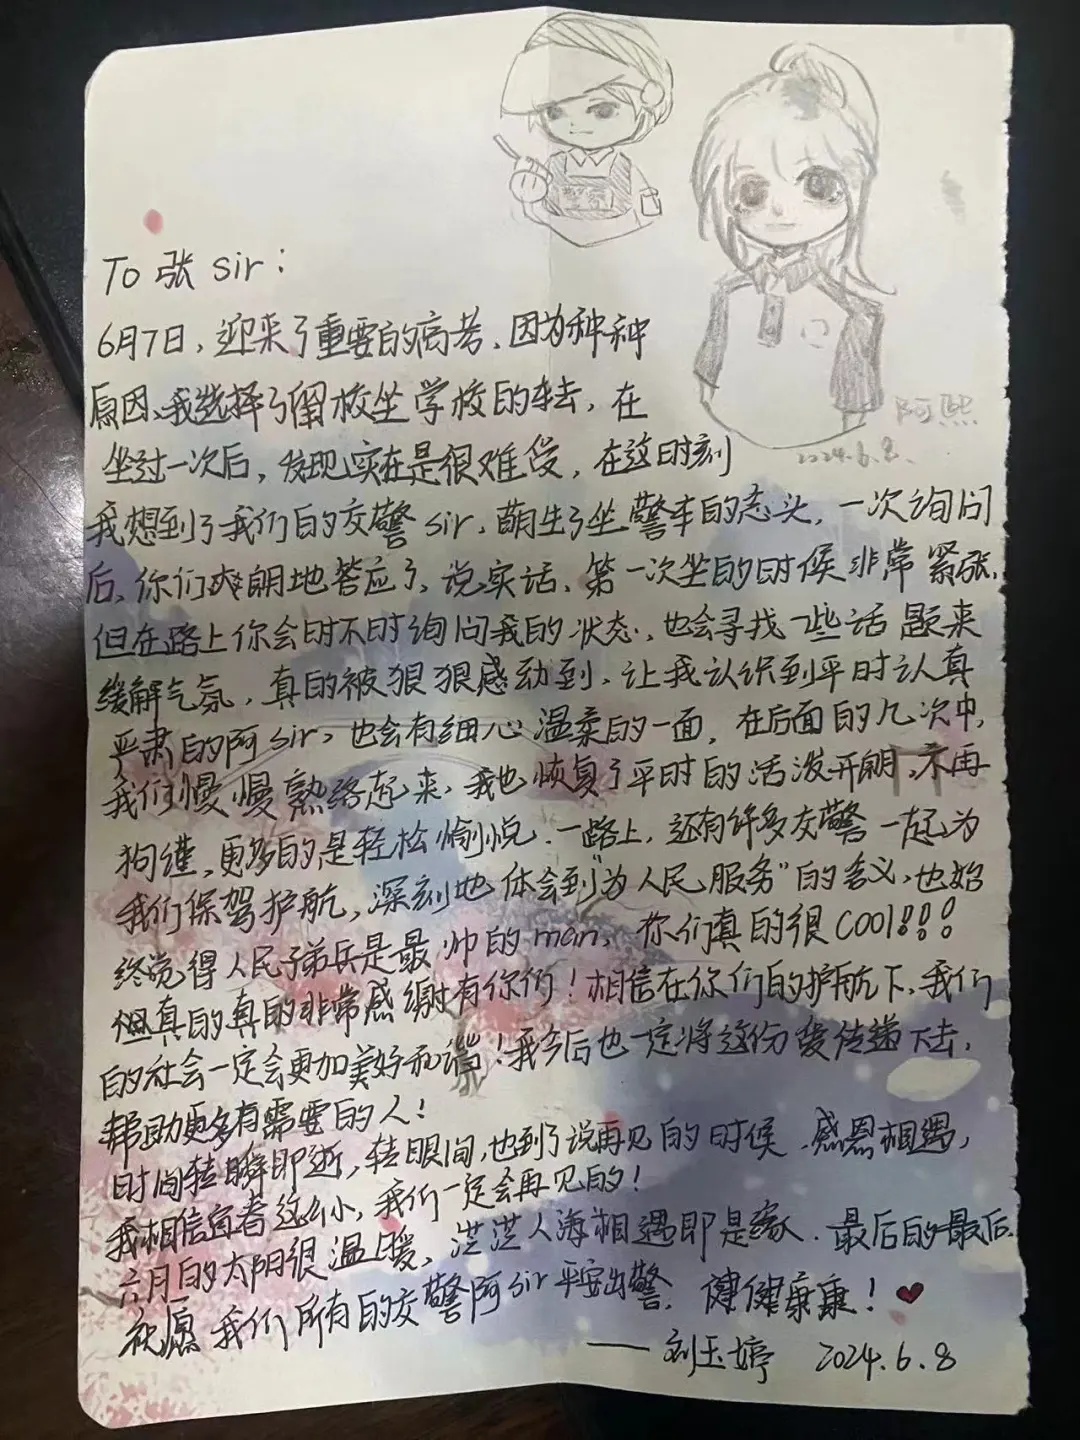 To 张 sir：
6月7日，迎来了重要的高考、因为种种
原因、我选择了留校坐学校的车去，在
坐过一次后，发现实在是很难受，在这时刻
我想到了我们的交警 sir，萌生了坐警车的念头，一次询问
后，你们爽朗地答应了，说实话，第一次坐的时候非常紧张，
但在路上你会时不时询问我的状态，也会寻找一些话题来
缓解气氛，真的被狠狠感动到，让我认识到平时认真
严肃的阿 sir，也会有细心温柔的一面，在后面的几次中，
我们慢慢熟络起来，我也恢复了平时的活泼开朗，不再
拘谨，更多的是轻松愉悦．一路上，还有许多交警一起为
我们保驾护航，深刻地体会到“为人民服务”的含义，也始
终觉得人民子弟兵是最帅的man，你们真的很COOl!!!
真的真的非常感谢有你们！相信在你们的护航下，我们
的社会一定会更加美好和谐！我今后也一定将这份爱传递下去，
帮助更多有需要的人！
时间转瞬即逝，转眼间，也到了说再见的时候．感恩相遇，
我相信宜春这么小，我们一定会再见的！
六月的太阳很温暖，茫茫人海相遇即是缘．最后的最后，
祝愿我们所有的交警阿sir平安出警，健健康康！
——刘玉婷 2024.6.8
阿熙
2024.6.8.